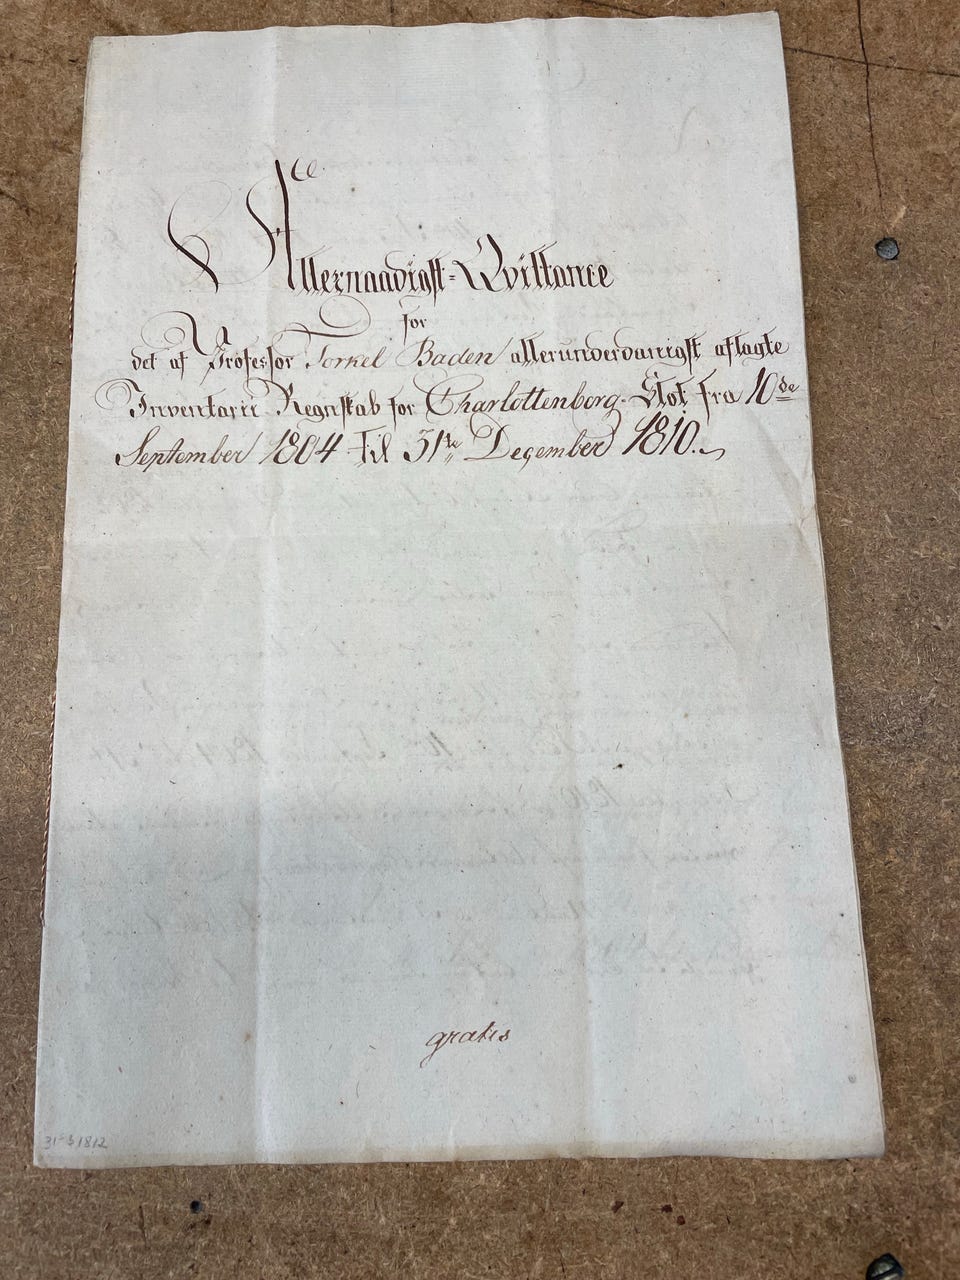 Allernaadigst-Qvittance
for
det af Professor Torkel Baden allerunderdanigst aflagte
Inventarii Regnskab for Charlottenborg-Slot fra 10de
September 1804 til 31te December 1810.
gratis
1812